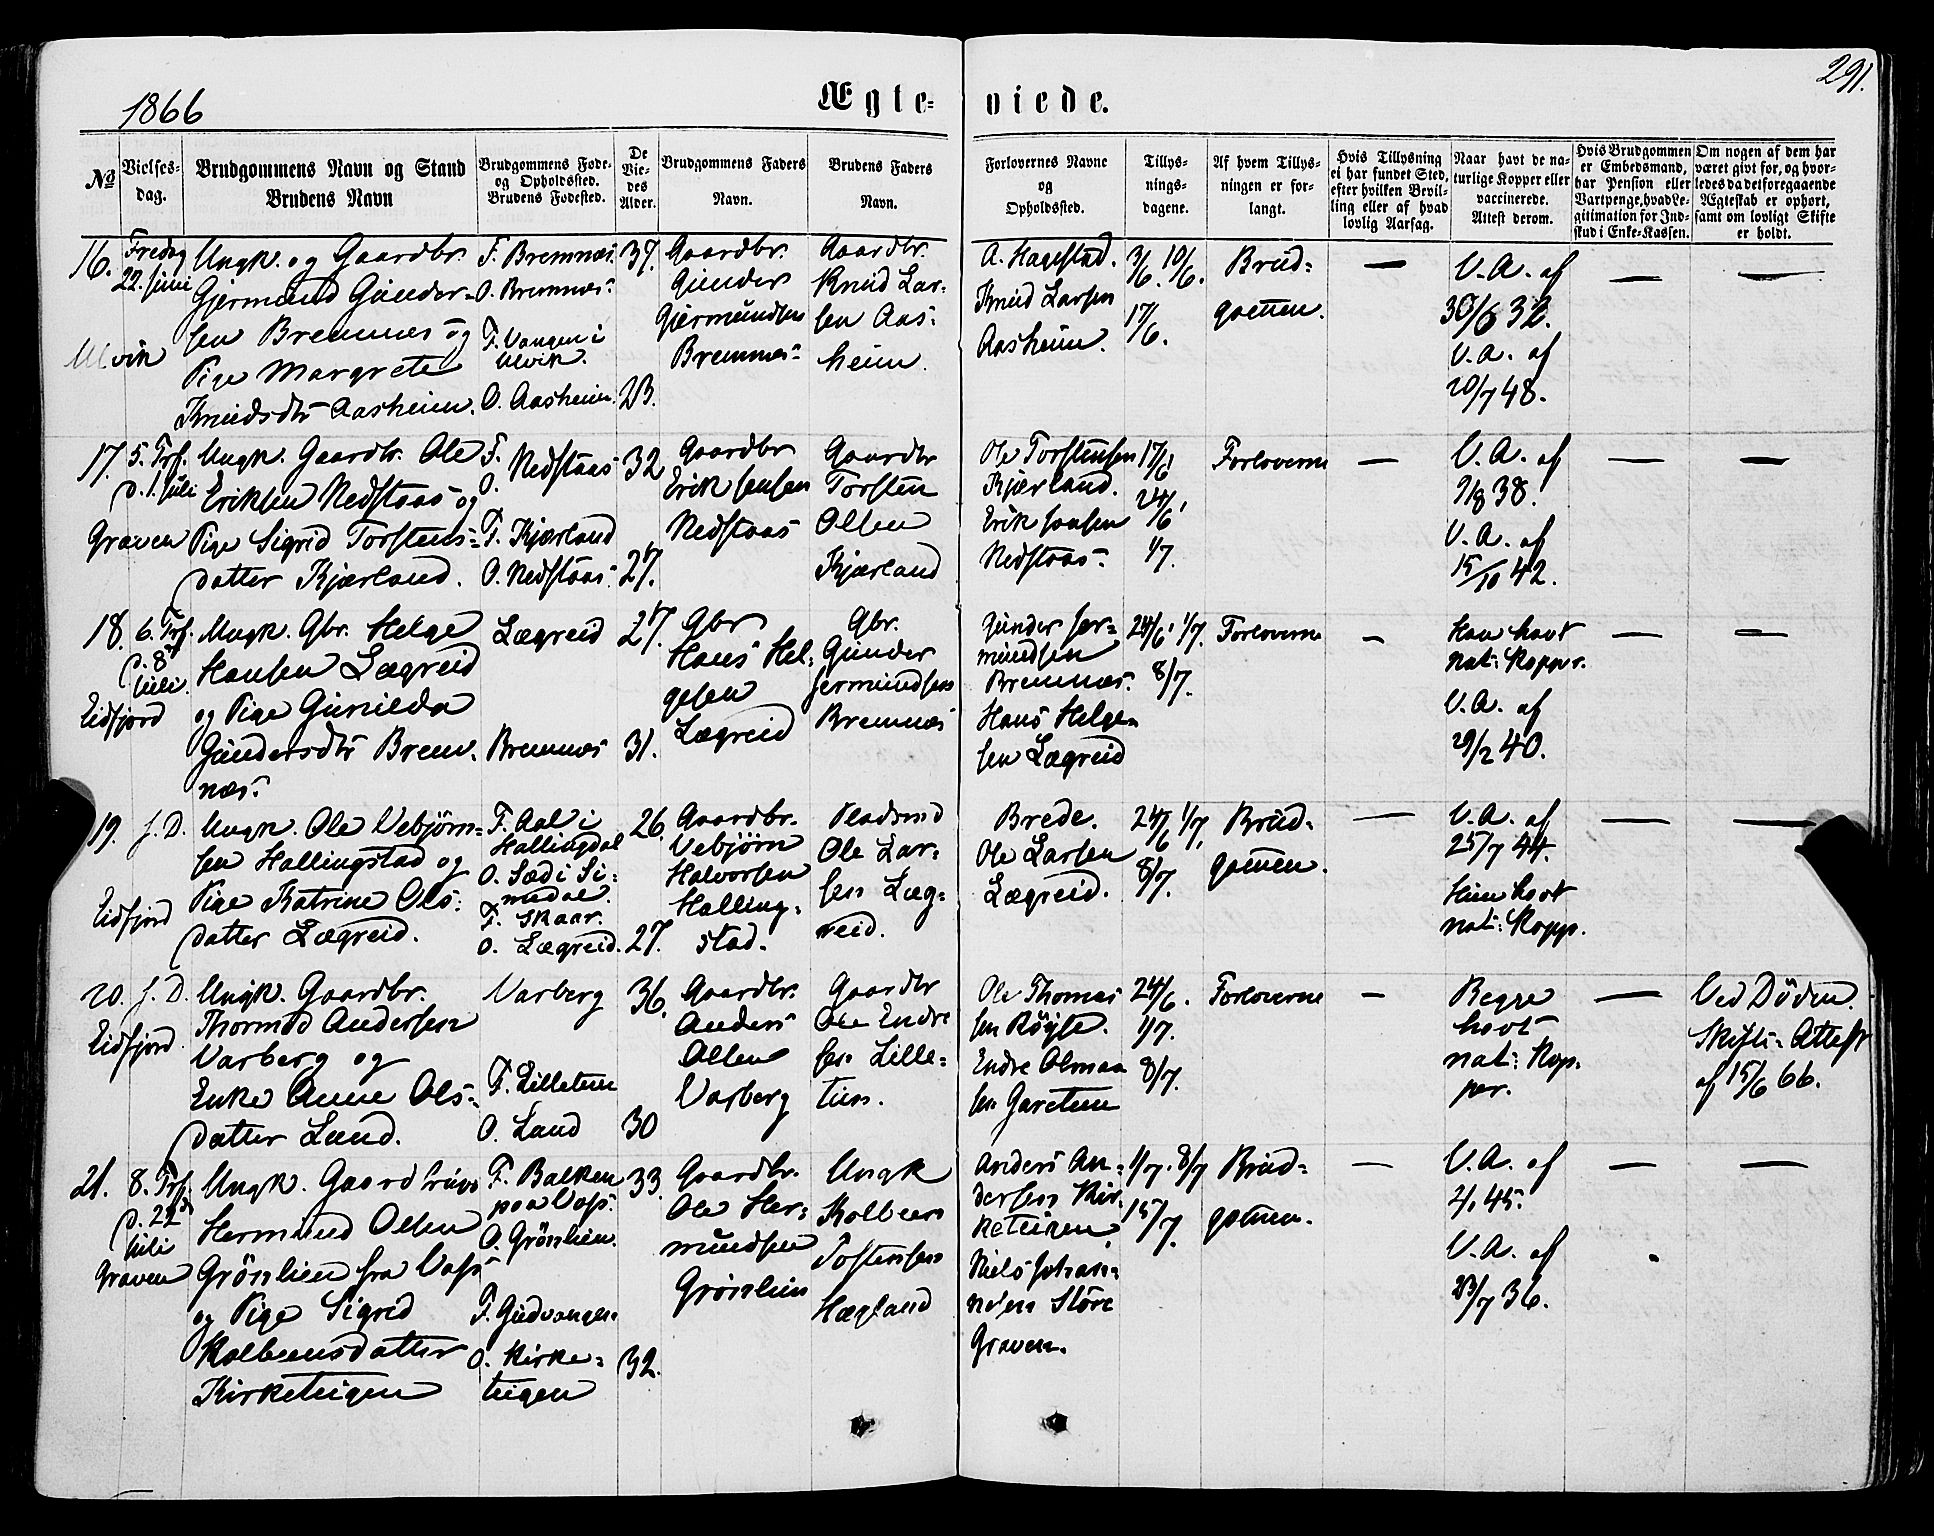 291.
1866
Ægte-viede.
No
Vielses-
dag.
Brudgommens Navn og Stand
Brudens Navn
Brudgommens Føde-
og Opholdssted.
Brudens Fødested.
De
Vie-
des
Alder.
Brudgommens Faders
Navn.
Brudens Faders
Navn.
Forlovernes Navne
og
Opholdssted.
Tillys-
nings-
dagene.
Af hvem Tillys-
ningen er for-
langt.
Hvis Tillysning
ei har fundet Sted,
efter hvilken Bevil-
ling eller af hvad
lovlig Aarsag.
Naar havt de na-
turlige Kopper eller
vaccinerede.
Attest derom.
Hvis Brudgommen
er Embedsmand,
har Pension eller
Vartpenge, hvad Le-
gitimation for Ind-
skud i Enke-Kassen.
Om nogen af dem har
været givt før, og hvor-
ledes da det foregaaende
Ægteskab er ophørt,
samt om lovligt Skifte
er holdt.
16.
Fredag
22. Juni
Ulvik
Ungk. og Gaardbr.
Gjermund Gunder-
sen Bremnes og
Pige Margrete
Knudsdtr Aasheim.
F. Bremnæs.
O. Bremnæs.
F. Vangen i
Ulvik.
O. Aasheim.
37.
23.
Gaardbr.
Gunder
Gjermundsen
Bremnæs
Gaardbr.
Knud Lar-
sen Aas-
heim.
A. Hagestad.
Knud Larsen
Aasheim.
3/6. 10/6.
17/6.
Brud-
gommen.
—
V. A. af
30/6 32.
V. A. af
20/7 48.
—
—
17.
5. Trf.
d. 1. Juli
Graven
Ungk. Gaardbr. Ole
Eriksen Nedstaas og
Pige Sigrid Torstens-
datter Kjærland.
F.
O. Nedstaas
F. Kjærland
O. Nedstaas
32
27.
Gaardbr
Erik Jensen
Nedstaas
Gaardbr
Torsten
Olsen
Kjærland
Ole Torstensen
Kjærland.
Erik Jonsen
Nedstaas
17/6
24/6
1/7.
Forloverne
—
V. A. af
9/8 38.
V. A. af
15/10 42.
—
—
18.
6. Trf.
d. 8
Juli.
Eidfjord
Ungk. Gbr. Helge
Hansen Lægreid
og Pige Gunilda
Gundersdtr Brem-
næs.
Lægreid
Bremnæs
27.
31.
Gbr
Hans Hel-
gesen
Lægreid
Gbr.
Gunder
Jermundsen
Bremnæs
Gunder Jer-
mundsen
Bremnæs.
Hans Helge-
sen Lægreid
24/6. 1/7.
8/7.
Forloverne
—
Han havt
nat: Kopper.
V. A. af
29/2 40.
—
—
19.
J. D.
Eidfjord
Ungk. Ole Vebjørn-
sen Hallingstad og
Pige Katrine Ols-
datter Lægreid.
F. Aal i
Hallingdal
O. Sæd i Si-
madal.
F. Skaar.
O. Lægreid.
26.
27.
Gaardbr.
Vebjørn
Halvorsen
Halling-
stad.
Pladsmd
Ole Lar-
sen Læg-
reid.
Brede.
Ole Larsen
Lægreid.
24/6 1/7.
8/7.
Brud-
gommen.
—
V. A. af
25/7 44.
Hun havt
nat: Kopp.
—
—
20.
J. D.
Eidfjord
Ungk. Gaardbr.
Thormod Andersen
Varberg og
Enke Anne Ols-
datter Lund.
Varberg
F. Lilletun
O. Lund
36.
30
Gaardbr.
Anders
Olsen
Varberg
Gaardbr
Ole Endre
sen Lille-
tun.
Ole Thomas
sen Røyte.
Endre Olmaa
sen Garetun
24/6.
1/7.
8/7.
Forloverne
—
Begge
havt
nat: Kop-
per.
—
Ved Døden.
Skifte-Attest
af 15/6 66.
21.
8. Trf.
d. 22
Juli
Graven
Ungk. Gaardbrug
Hermund Olsen
Grønlien fra Vos
og Pige Sigrid
Kolbensdatter
Kirketeigen
F. Balken
paa Vos.
O. Grønlien.
F. Gudvangen
O. Kirke-
teigen
33.
32.
Gaardbr.
Ole Her-
mundsen
Grønlien
Ungk
Kolbeen
Tostensen
Hægland
Anders An-
dersen Kir-
keteigen,
Niels Johan-
nesen Støre
Graven.
1/7. 8/7
15/7.
Brud-
gommen.
—
V. A. af
2/1 45.
V. A. af
23/7 36.
—
—